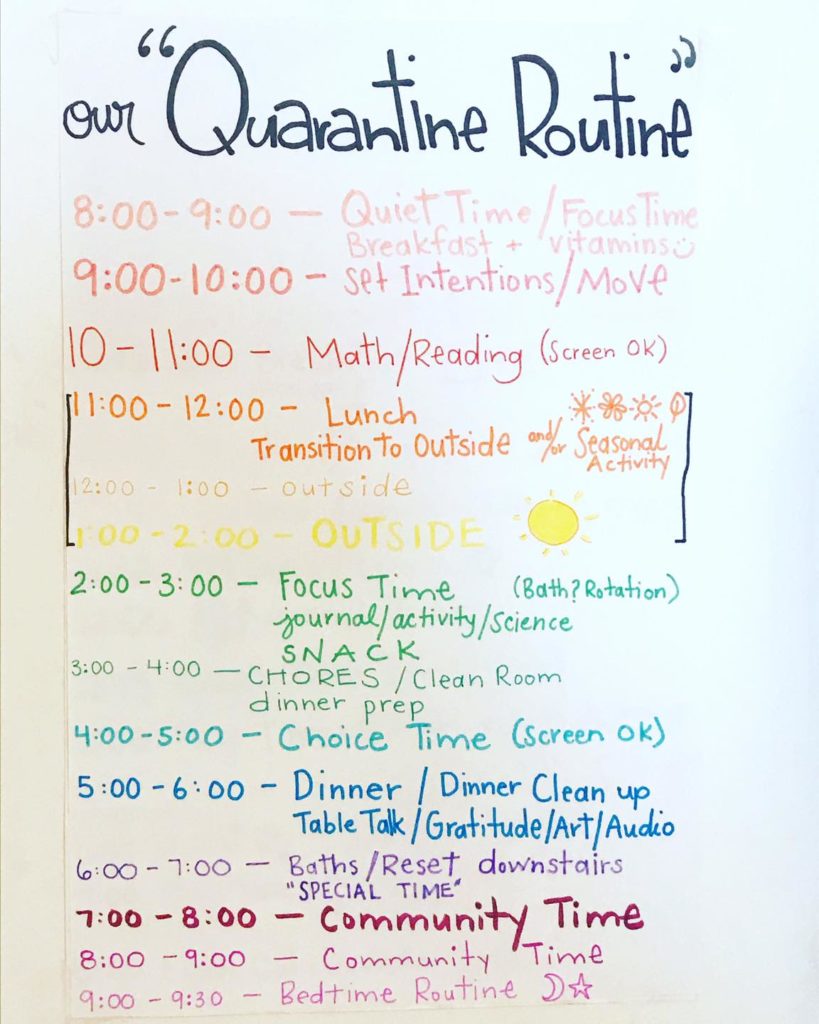 our "Quarantine Routine"
8:00-9:00 — Quiet Time/Focus Time
Breakfast + vitamins
9:00-10:00 - set Intentions/Move
10 - 11:00 - Math/Reading (Screen OK)
11:00 - 12:00 - Lunch
Transition to Outside and/or Seasonal
Activity
12:00 - 1:00 - outside
1:00 - 2:00 - OUTSIDE
2:00 - 3:00 - Focus Time (Bath? Rotation)
journal/activity/science
SNACK
3:00 - 4:00 - CHORES / Clean Room
dinner prep
4:00 - 5:00 - Choice Time (Screen OK)
5:00 - 6:00 - Dinner / Dinner Clean up
Table Talk/Gratitude/Art/Audio
6:00 - 7:00 - Baths/Reset downstairs
"SPECIAL TIME"
7:00 - 8:00 - Community Time
8:00 - 9:00 - Community Time
9:00 - 9:30 - Bedtime Routine